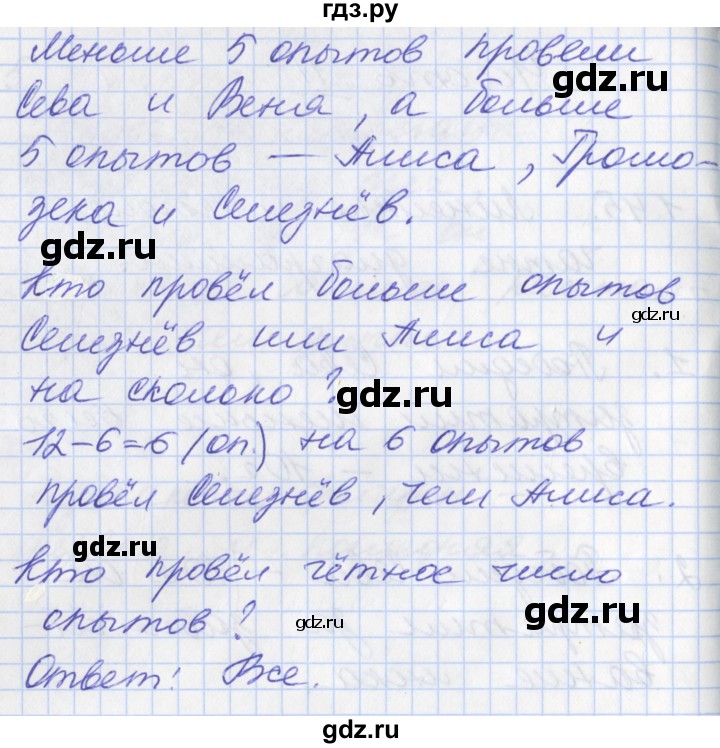 гдз.ру
Меньше 5 опытов провели
Сева и Веня, а больше
5 опытов — Алиса, Громо-
зека и Селезнёв.
gdz.ru
gdz.ru
Кто провёл больше опытов
gdz.ru
Селезнёв или Алиса и
на сколько?
gdz.ru
12-6=6 (оп.) на 6 опытов
провёл Селезнёв, чем Алиса.
gdz.ru
Кто провёл чётное число
gdz.ru
опытов?
gdz.ru
Ответ: Все.
gdz.ru